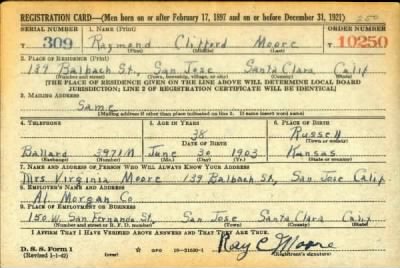 REGISTRATION CARD—(Men born on or after February 17, 1897 and on or before December 31, 1921)
SERIAL NUMBER 1. NAME (Print) ORDER NUMBER
T 309 Raymond Clifford Moore T 10250
(First) (Middle) (Last)
2. PLACE OF RESIDENCE (Print)
139 Balbach St, San Jose Santa Clara Calif
(Number and street) (Town, township, village, or city) (County) (State)
[THE PLACE OF RESIDENCE GIVEN ON THE LINE ABOVE WILL DETERMINE LOCAL BOARD
JURISDICTION; LINE 2 OF REGISTRATION CERTIFICATE WILL BE IDENTICAL]
3. MAILING ADDRESS
Same
[Mailing address if other than place indicated on line 2. If same insert word same]
4. TELEPHONE 5. AGE IN YEARS 6. PLACE OF BIRTH
38 Russell
DATE OF BIRTH (Town or county)
Ballard 3971M June 30 1903 Kansas
(Exchange) (Number) (Mo.) (Day) (Yr.) (State or country)
7. NAME AND ADDRESS OF PERSON WHO WILL ALWAYS KNOW YOUR ADDRESS
Mrs Virginia Moore 139 Balbach St, San Jose Calif.
8. EMPLOYER'S NAME AND ADDRESS
Al. Morgan Co.
9. PLACE OF EMPLOYMENT OR BUSINESS
150 W. San Fernando St, San Jose Santa Clara Calif
(Number and street or R. F. D. number) (Town) (County) (State)
I AFFIRM THAT I HAVE VERIFIED ABOVE ANSWERS AND THAT THEY ARE TRUE.
D. S. S. Form 1 GPO 16—21630-1 Ray C Moore
(Revised 1-1-42) (Registrant's signature)